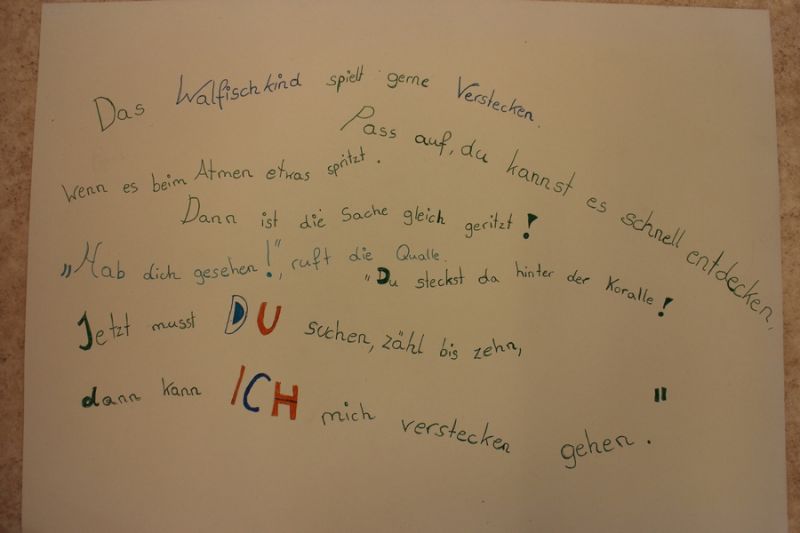 Das Walfischkind spielt gerne Verstecken.
Pass auf, du kannst es schnell entdecken,
Wenn es beim Atmen etwas spritzt.
Dann ist die Sache gleich geritzt!
„Hab dich gesehen!", ruft die Qualle.
"Du steckst da hinter der Koralle!
Jetzt musst DU suchen, zähl bis zehn,
dann kann ICH mich verstecken gehen."